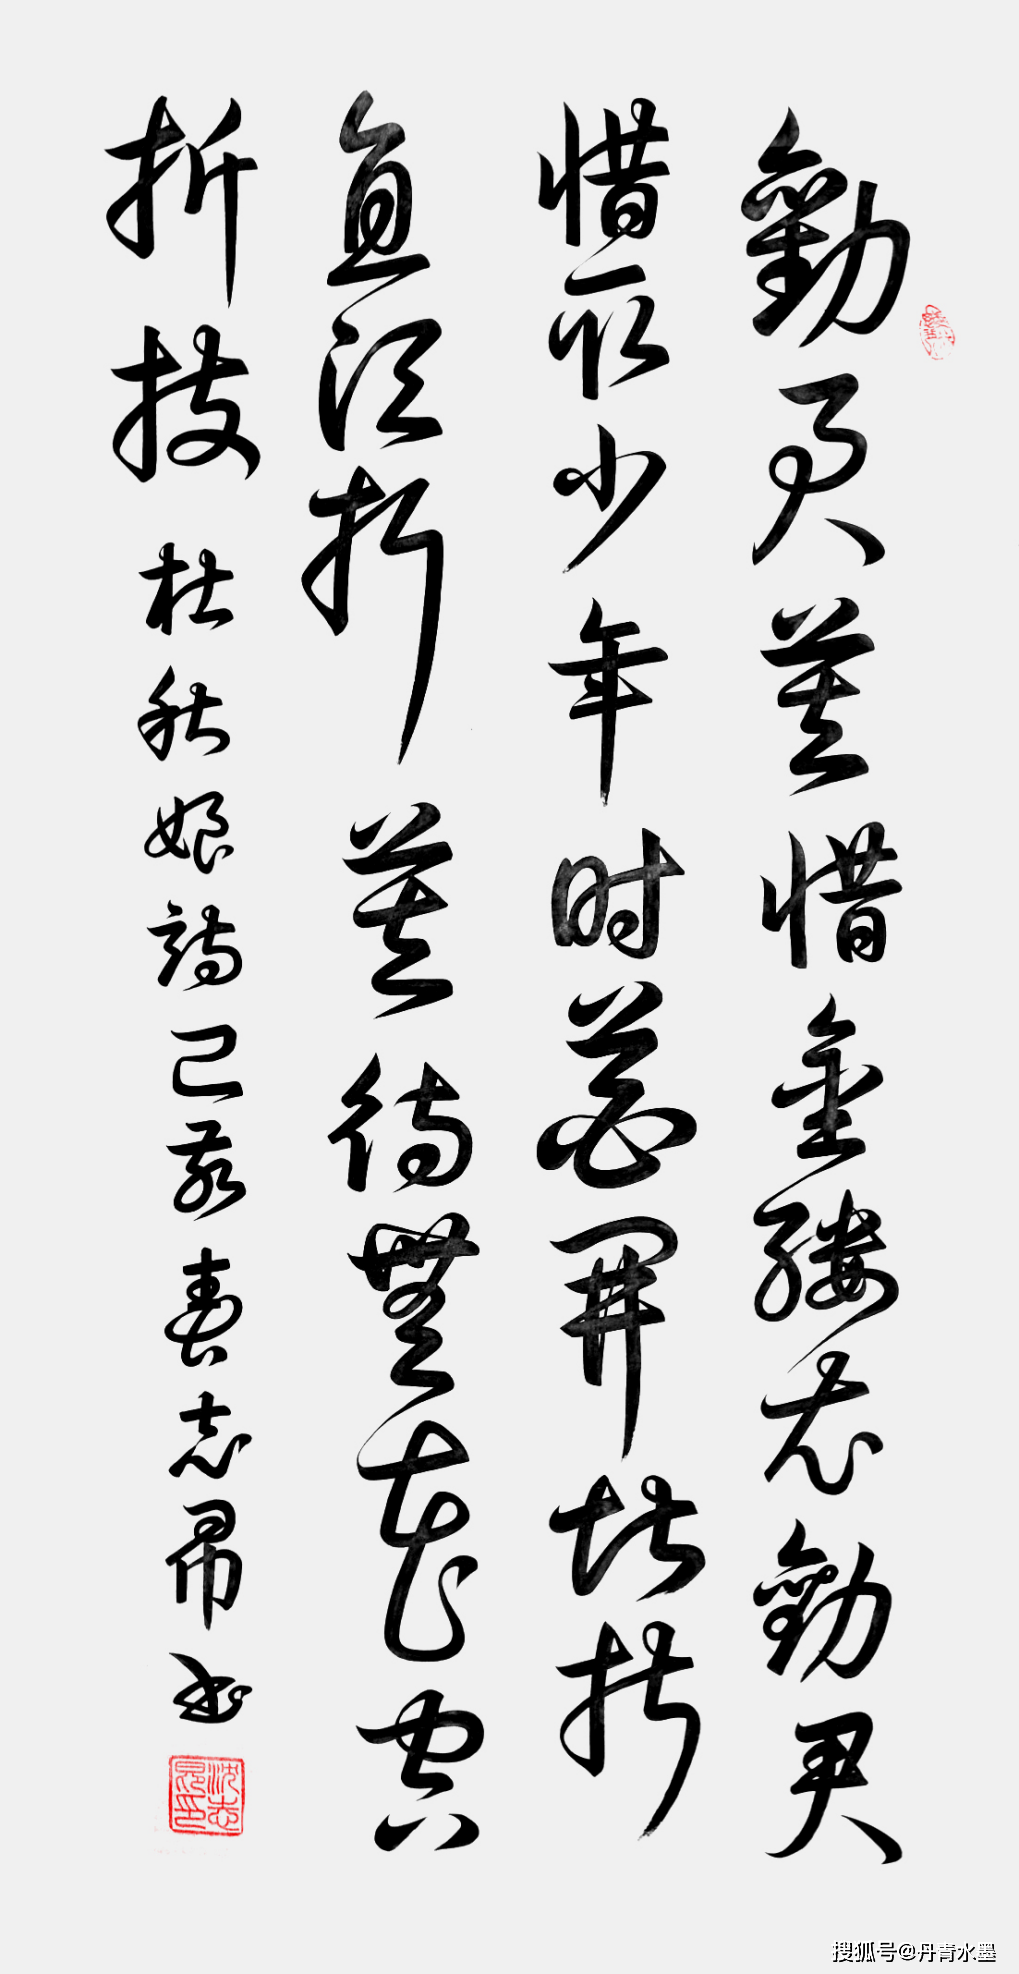 勸君莫惜金縷衣勸君
惜取少年时花開堪折
直須折莫待無花空
折枝 杜秋娘詩己亥春志书
搜狐号@丹青水墨